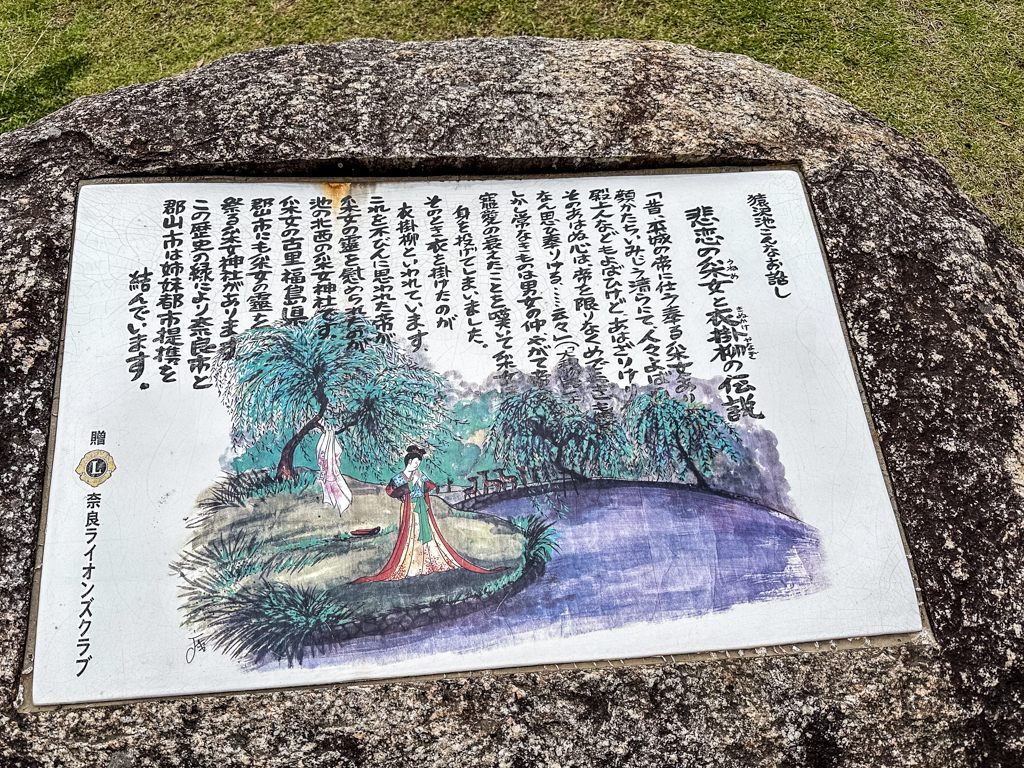 猿沢池こんなお話し
悲恋の采女と衣掛柳の伝説
うねめ
きぬかけやなぎ
「昔、平城の帝に仕う奉る采女あり
顔かたちいみじう清らにて、人々よばひ
殿上人などもよばひけど、あはざりけり
そのあはぬ心は、帝を限りなくめでたき
なん思ひ奉りける……云々」(大和
しかし常なきものは男女の仲、やがて帝
寵愛の衰えたことを嘆いて采女
身を投げてしまいました。
そのとき衣を掛けたのが
衣掛柳といわれています。
これを不びんに思われた帝が
采女の霊を慰められたのが
池の北西の采女神社です。
采女の古里福島県
郡山市にも采女の霊を
祭る采女神社があります
この歴史の縁により奈良市と
郡山市は姉妹都市提携を
結んでいます。
贈
L
奈良ライオンズクラブ